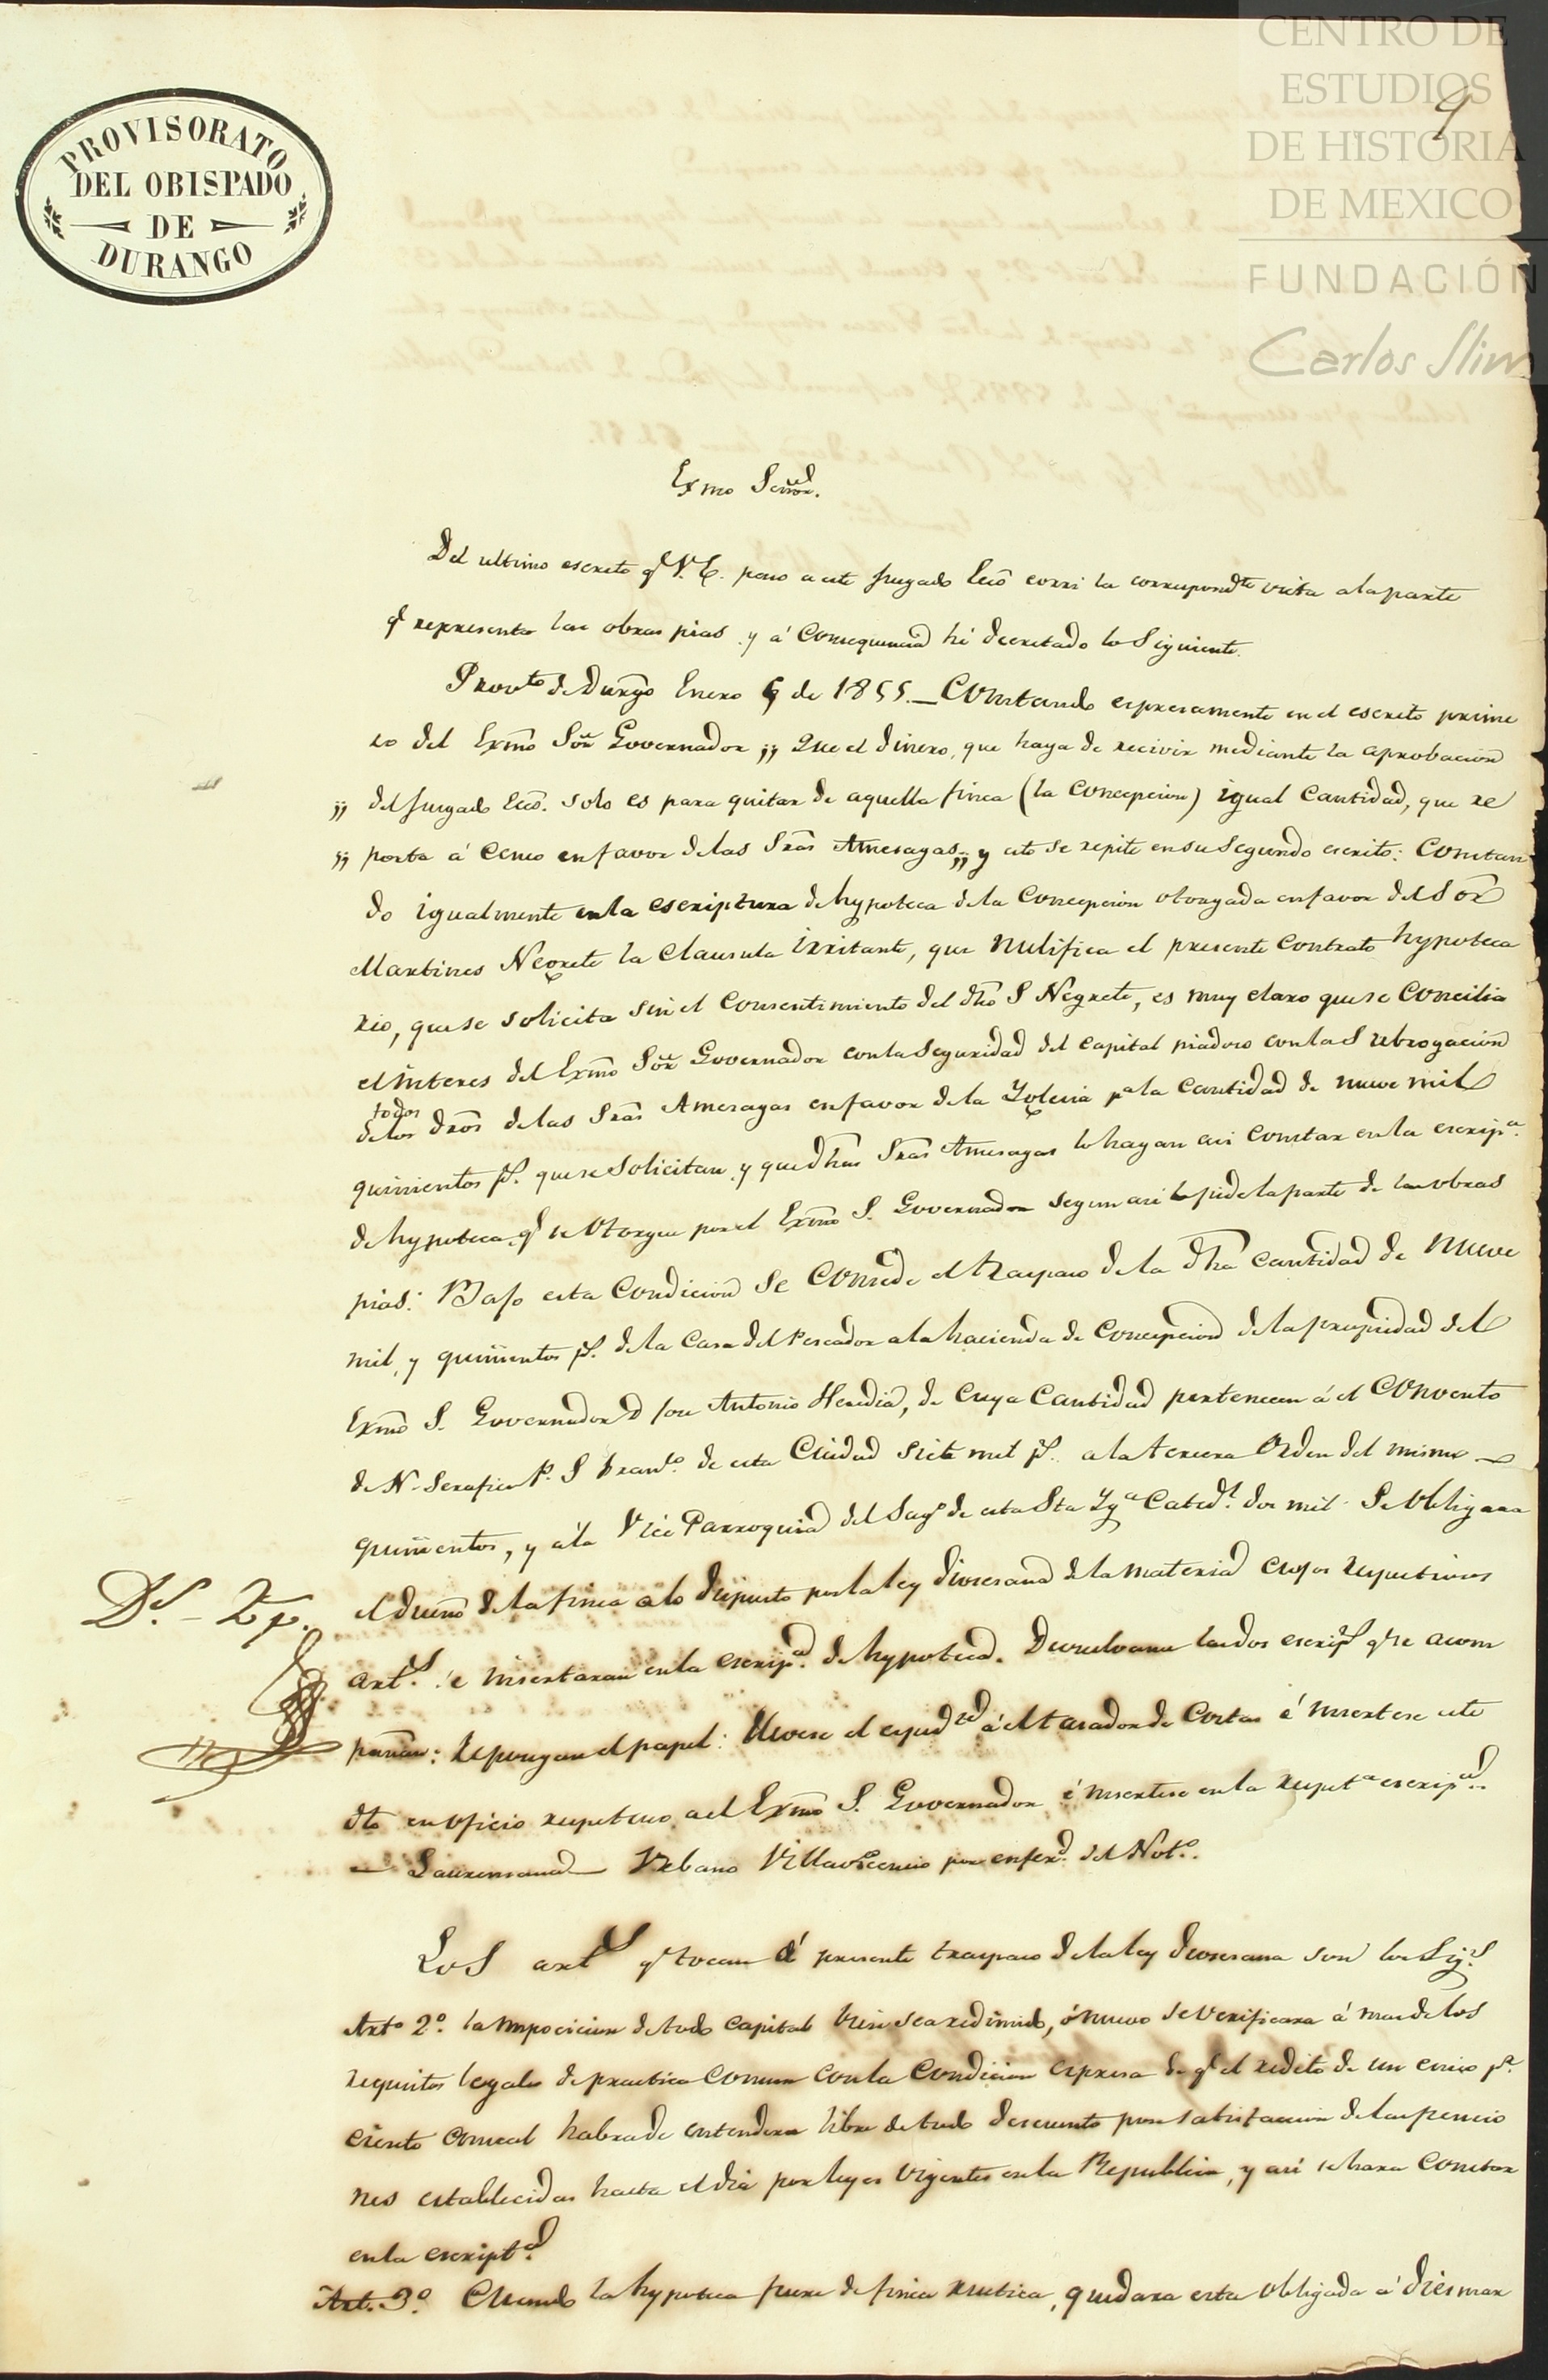 PROVISORATO
DEL OBISPADO
DE
DURANGO
CENTRO DE
ESTUDIOS
DE HISTORIA
DE MEXICO
FUNDACIÓN
Carlos Slim
9
Exmo Señor.
Del ultimo escrito q.e V.E. paso a este Juzgado Ecco corri la correspond.te vista a la parte
q.e representa las obras pias y á consequencia hé decretado lo Siguiente.
Provto de Durgo Enero 9 de 1855.— Constando espresamente en el escrito prime
ro del Exmo Sor Governador „ Que el dinero, que haya de recivir mediante la aprobacion
„ del Juzgado Ecco. solo es para quitar de aquella finca (la Concepcion) igual Cantidad, que re
„ porta á Censo en favor de las Sras Amesagas „ y esto se repite en su Segundo escrito: Constan
do igualmente en la escriptura de hypoteca de la Concepcion otorgada en favor del Sor
Martines Negrete la Clausula irritante, que nulifica el presente Contrato hypoteca
rio, que se solicita sin el Consentimiento del dho S Negrete, es muy claro que se Concilia
el interes del Exmo Sor Governador con la Seguridad del Capital piadoso con la Subrogacion
todos
de los dros de las Sras Amesagas en favor de la Yglesia pr la Cantidad de nueve mil
quinientos ps. que se Solicitan y que dhas Sras Amesagas lo hagan asi Constar en la escripa.
de hypoteca q.e se Otorgue por el Exmo S. Governador segun asi lo pide la parte de las obras
pias: Bajo esta Condicion Se Concede el traspaso de la dha Cantidad de Nueve
mil, y quinientos ps. de la Casa del Pescador a la hacienda de Concepcion de la propriedad del
Exmo S. Governador D Jose Antonio Heredia, de Cuya Cantidad pertenecen á el Convento
de N. Serafico P. S Franco. de esta Ciudad Siete mil ps. a la tercera Orden del mismo
quinientos, y á la Vice Parroquia del Sago de esta Sta Yga Catedl. dos mil. Se Obligara
el dueño de la finca a lo dispuesto por la ley diocesana de la materia Cuyos respectivos
Ds. - 2 p.
arts. se insertaran en la escripa. de hypoteca. Devuelvanse las dos escrips q.e se acom
pañan: repongase el papel: Llevese el á el tasador de Costas é insertese este
dto en Oficio respetuoso a el Exmo S. Governador é insertese en la respeta escripa.
— Laurenzana — Urbano Villavicencio por enferd. del Noto.
Los arts q.e tocan al presente traspaso de la ley diocesana son los Sigs.
Arto 2o. la imposicion de todo Capital bien sea redimido, ó nuevo se Verificara á mas de los
requisitos legales de practica Comun con la Condicion espresa de q.e el redito de un cinco pr
ciento anual habra de entenderse libre de todo descuento por satisfaccion de las pencio
nes establecidas hasta el dia por leyes Vigentes en la Republica, y asi se hara Constar
en la escripta.
Art. 3o. Cuando la hypoteca fuere de finca rustica, quedara esta Obligada á diesmar